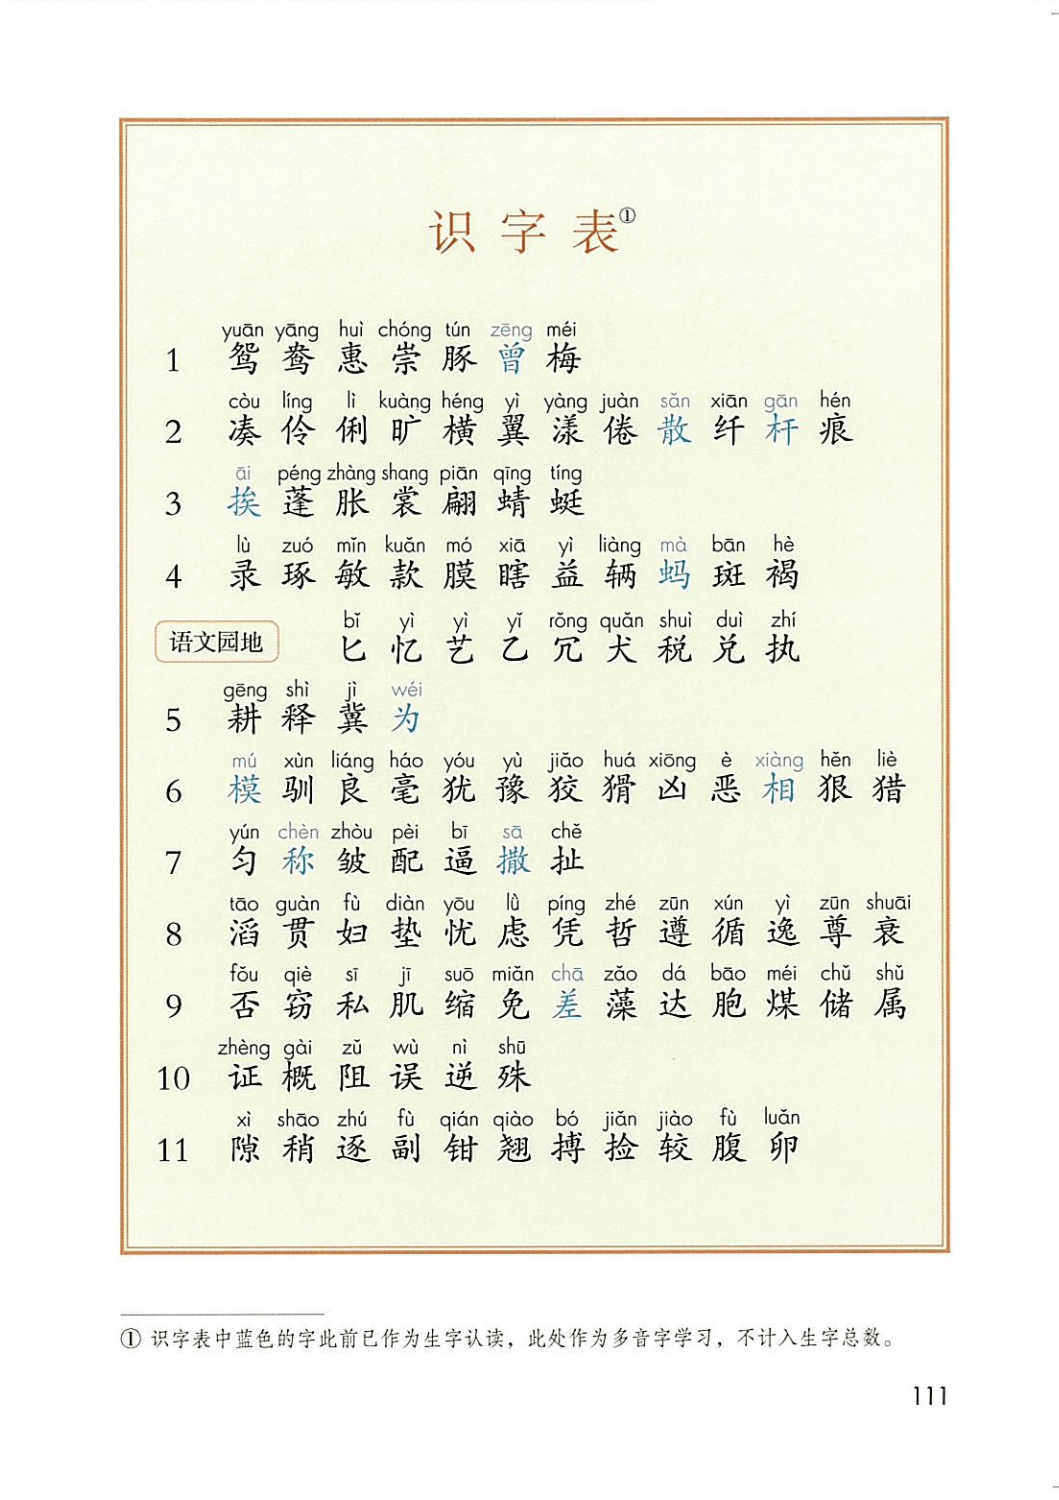 识字表①
yuān yāng huì chóng tún zēng méi
1 鸳 鸯 惠 崇 豚 曾 梅
còu líng lì kuàng héng yì yàng juàn sǎn xiān gān hén
2 凑 伶 俐 旷 横 翼 漾 倦 散 纤 杆 痕
āi péng zhàng shang piān qīng tíng
3 挨 蓬 胀 裳 翩 蜻 蜓
lù zuó mǐn kuǎn mó xiā yì liàng mà bān hè
4 录 琢 敏 款 膜 瞎 益 辆 蚂 斑 褐
bǐ yì yì yǐ rǒng quǎn shuì duì zhí
语文园地 匕 忆 艺 乙 冗 犬 税 兑 执
gēng shì jì wéi
5 耕 释 冀 为
mú xùn liáng háo yóu yù jiǎo huá xiōng è xiàng hěn liè
6 模 驯 良 毫 犹 豫 狡 猾 凶 恶 相 狠 猎
yún chèn zhòu pèi bī sā chě
7 匀 称 皱 配 逼 撒 扯
tāo guàn fù diàn yōu lǜ píng zhé zūn xún yì zūn shuāi
8 滔 贯 妇 垫 忧 虑 凭 哲 遵 循 逸 尊 衰
fǒu qiè sī jī suō miǎn chā zǎo dá bāo méi chǔ shǔ
9 否 窃 私 肌 缩 免 差 藻 达 胞 煤 储 属
zhèng gài zǔ wù nì shū
10 证 概 阻 误 逆 殊
xì shāo zhú fù qián qiào bó jiǎn jiào fù luǎn
11 隙 稍 逐 副 钳 翘 搏 捡 较 腹 卵
① 识字表中蓝色的字此前已作为生字认读，此处作为多音字学习，不计入生字总数。
111